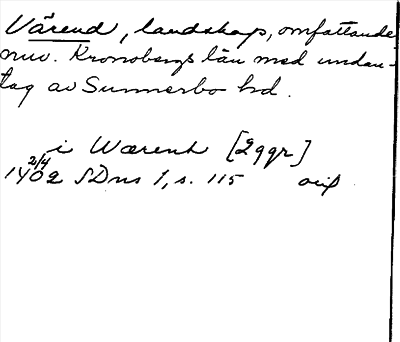 Värend, landskap, omfattande
nuv. Kronobergs län med undan-
tag av Sunnerbo hd.
i Wærenh [2 ggr]
2/4
1402 SDns 1, s. 115 avs